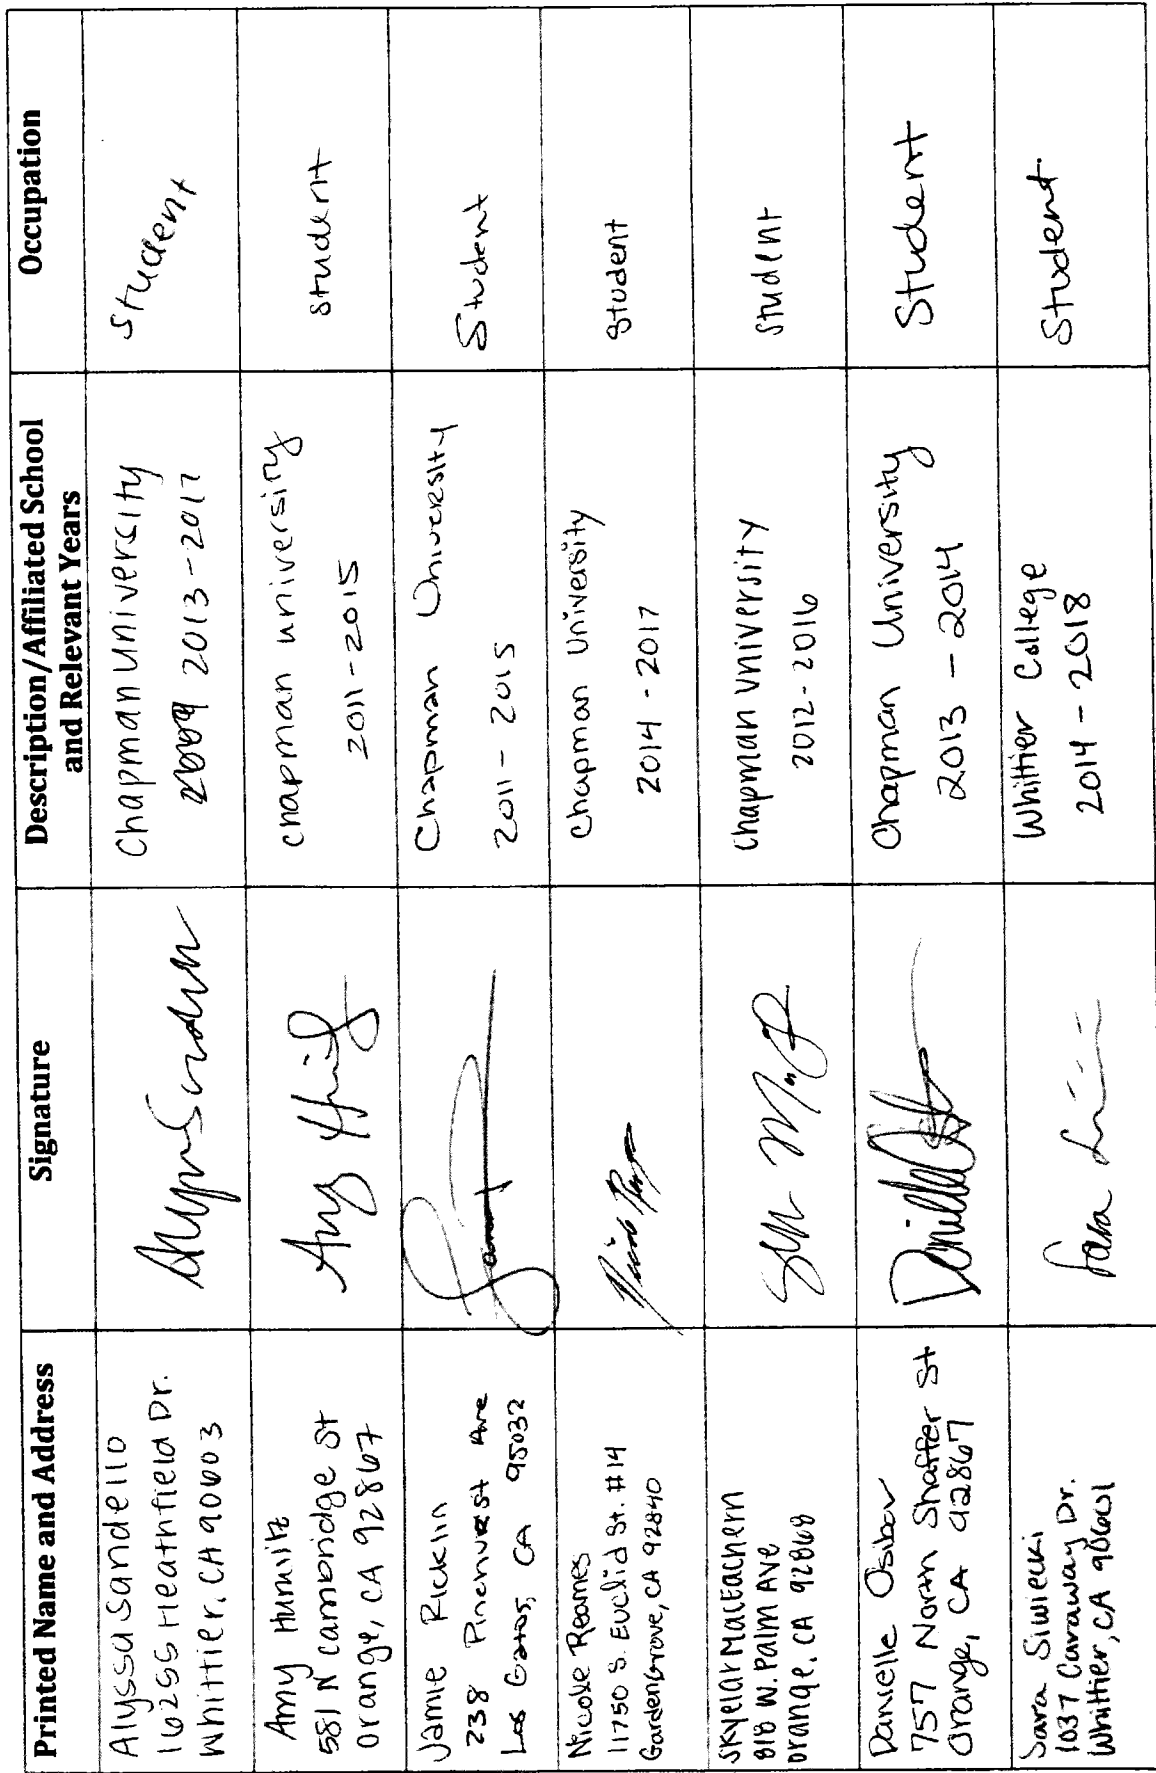 Printed Name and Address
Signature
Description/Affiliated School
and Relevant Years
Occupation
Alyssa Sandello
16255 Heathfield Dr.
Whittier, CA 90603
Chapman University
2013-2017
Student
Amy Hurwitz
581 N Cambridge St
Orange, CA 92867
Amy
Chapman University
2011-2015
Student
Jamie Ricklin
238 Pinehurst Ave
Los Gatos, CA 95032
Chapman University
2011-2015
Student
Nicole Reames
11750 S. Euclid St. #14
Garden Grove, CA 92840
Chapman University
2014-2017
Student
Skyelar MacEachern
818 W. Palm Ave
Orange, CA 92868
Chapman University
2012-2016
Student
Danielle
757 North Shaffer St
Orange, CA 92867
Chapman University
2013-2014
Student
Sara Siwiecki
1037 Caraway Dr.
Whittier, CA 90601
Sara
Whittier College
2014-2018
Student